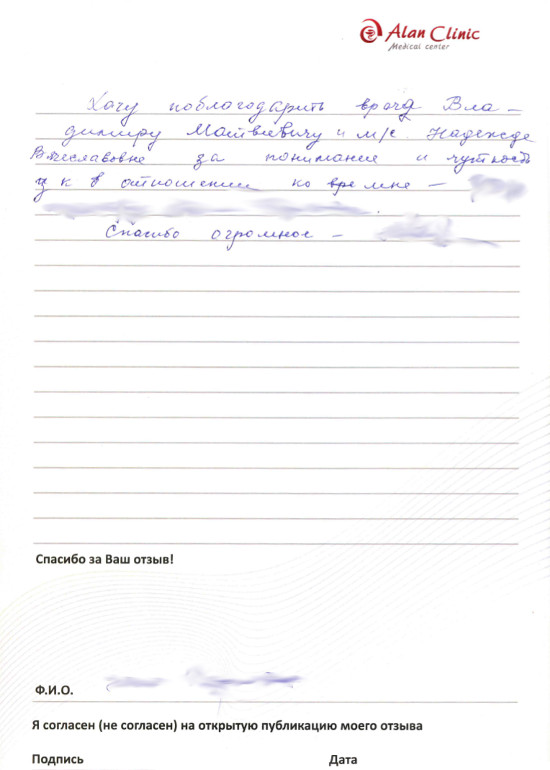 Alan Clinic
Medical center
Хочу поблагодарить врача Вла-
димиру Матвиевичу и м/с. Надежде
Вячеславовне за понимание и чуткость
в отношении ко мне –
Спасибо огромное –
Спасибо за Ваш отзыв!
Ф.И.О.
Я согласен (не согласен) на открытую публикацию моего отзыва
Подпись Дата